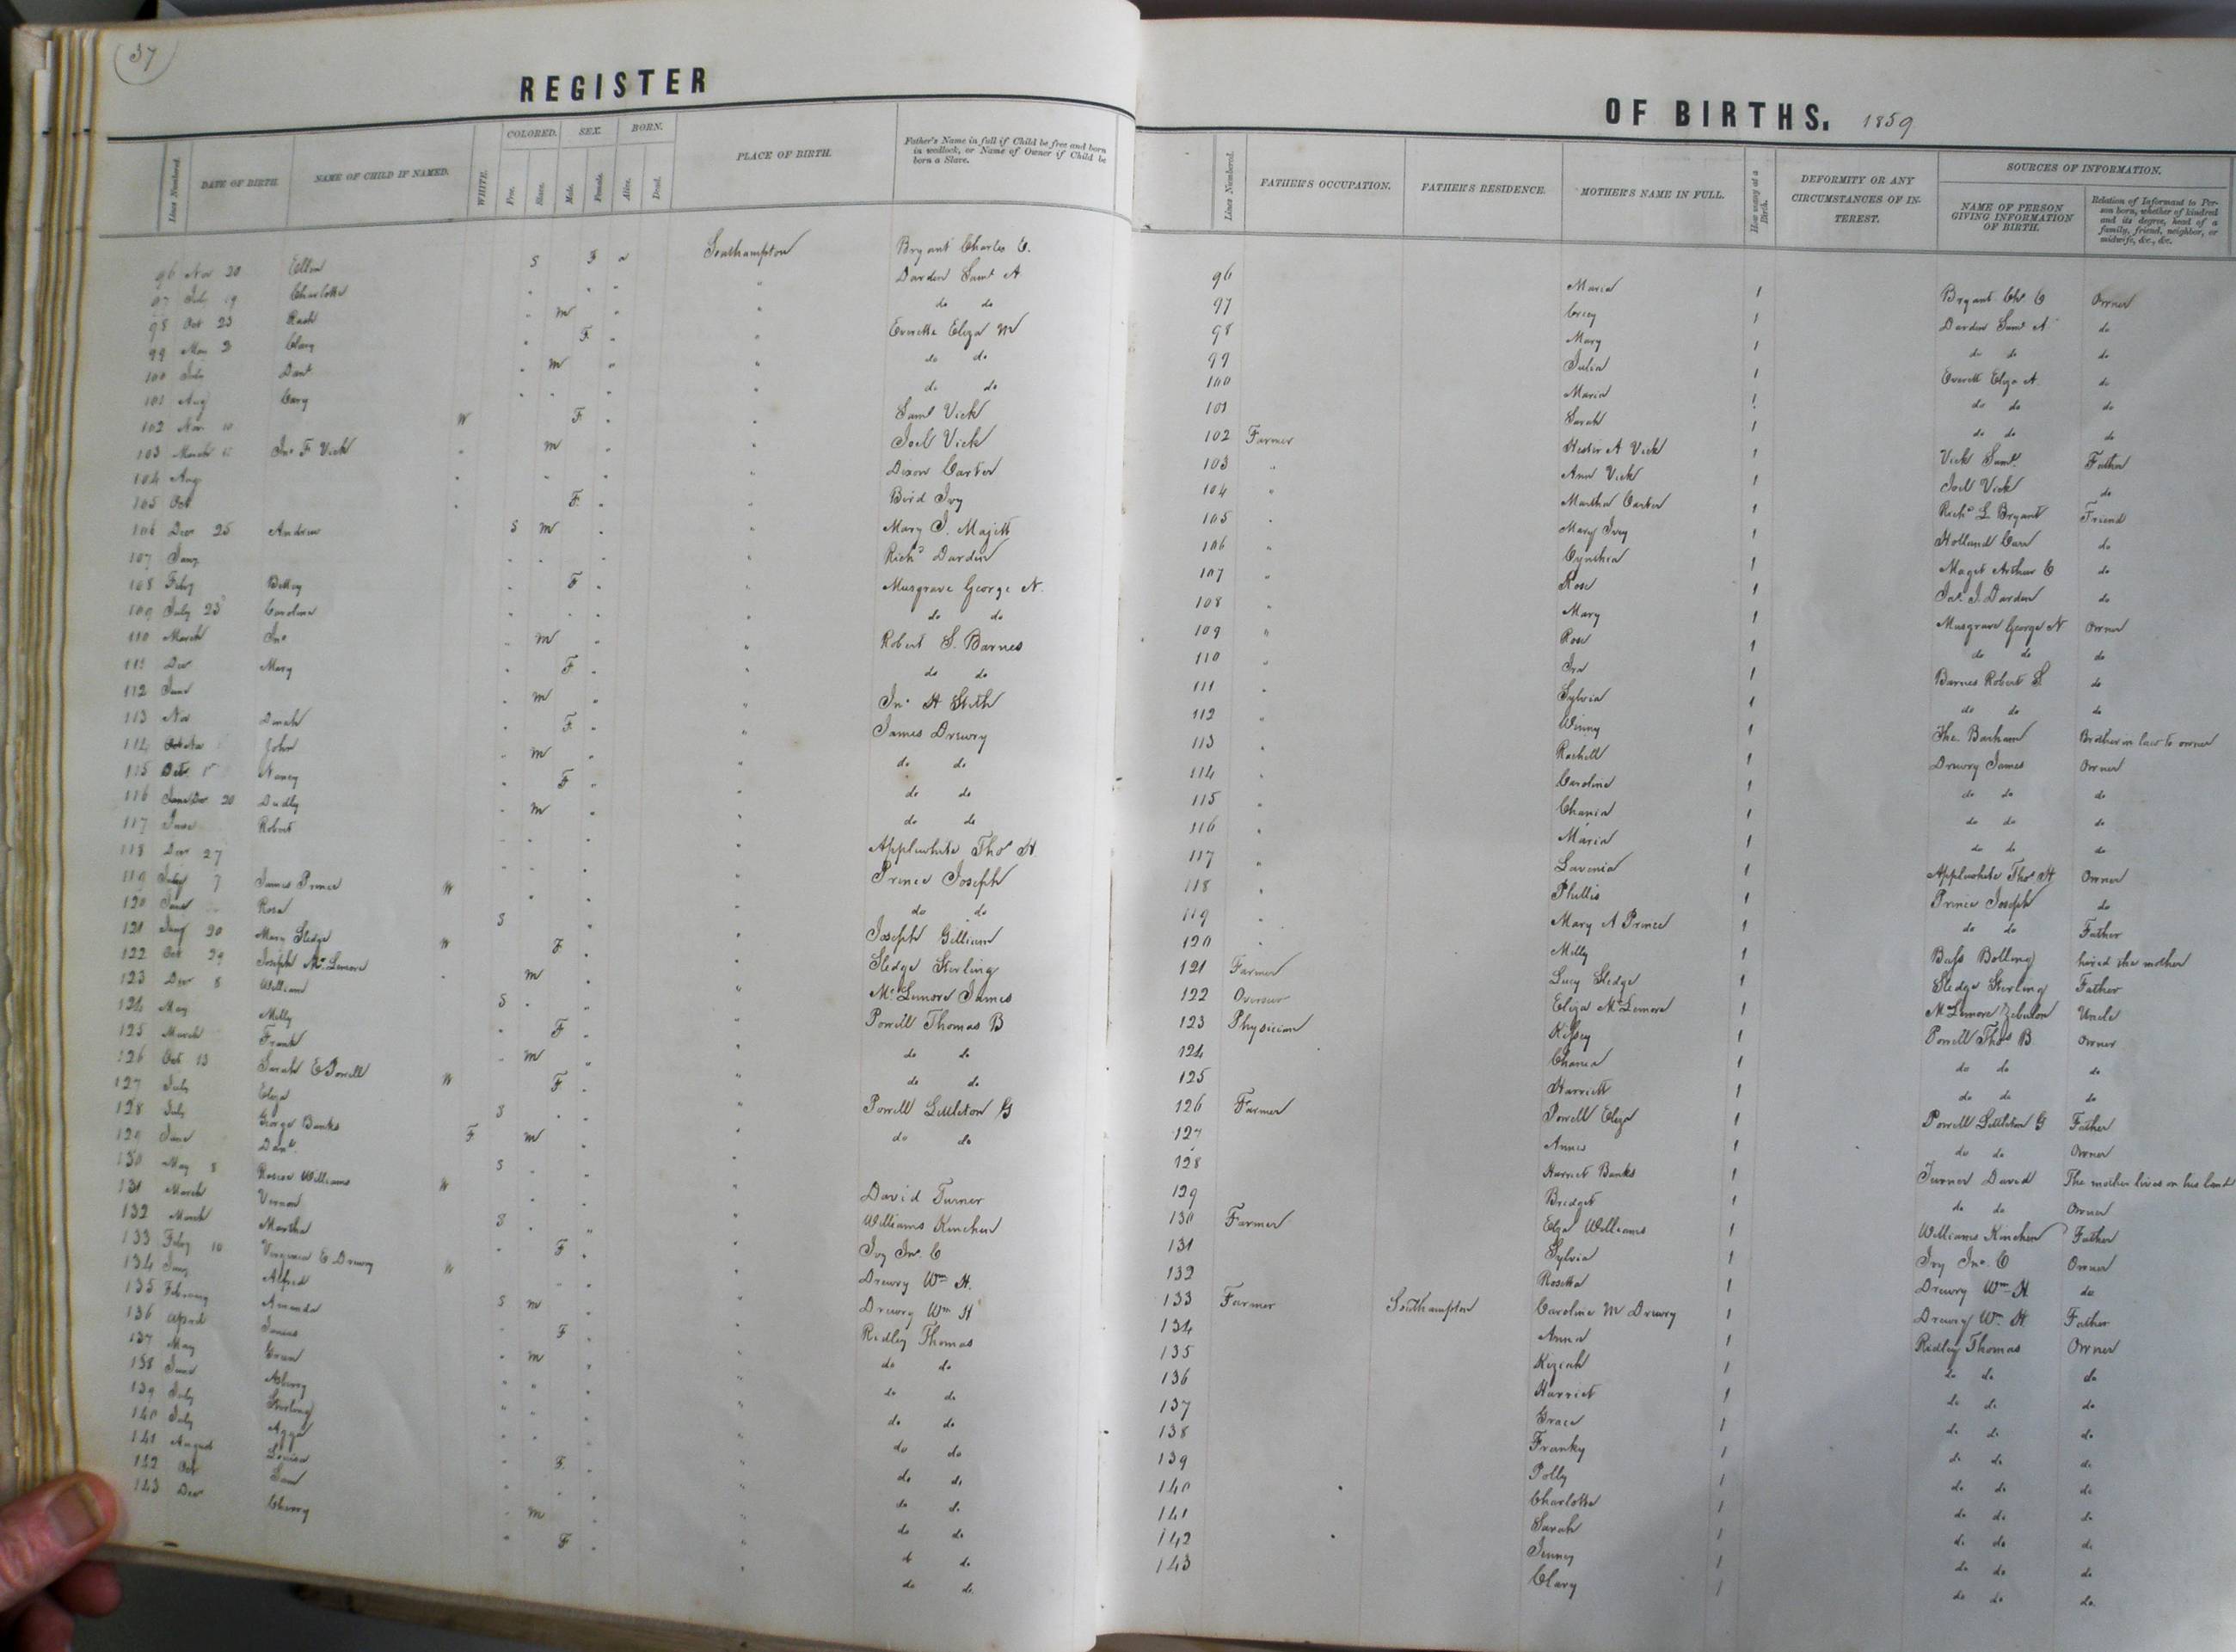 37
REGISTER
Lines Numbered. DATE OF BIRTH. NAME OF CHILD IF NAMED. WHITE. COLORED. Free. Slave. SEX. Male. Female. BORN. Alive. Dead. PLACE OF BIRTH. Father's Name in full if Child be free and born in wedlock, or Name of Owner if Child be born a Slave.
96 Nov 20 Ellen S F Southampton Bryant Charles C.
97 July 19 Charlotte Darden Saml A
98 Oct 23 m do do
99 Clary F Everette Eliza M
100 July Danl m do do
101 Aug Cary do do
102 Nov 10 W F Saml Vick
103 March Jno F Vick m Joel Vick
104 Aug Dixon Carter
105 Oct F Bird Ivy
106 Dec 25 Andrew S m Mary J. Majett
107 Jany Richd Darden
108 Feby Betsey F Musgrave George N.
109 July 23 Caroline do do
110 March Jno m Robert S. Barnes
111 Dec Mary F do do
112 June m Jno H Stith
113 Nov Dinah F James Drewry
114 John m do do
115 Nancy F do do
116 20 Dudly m do do
117 June Robert Applewhite Thos H.
118 Dec 27 Prince Joseph
119 July 7 James Prince W do do
120 June Rosa S Joseph Gilliam
121 Jany 20 Mary Sledge W F Sledge Sterling
122 Oct 29 Joseph McLemore m McLemore James
123 Dec 8 William S Powell Thomas B
124 May Milly F do do
125 March Frank m do do
126 Oct 13 Sarah E Powell W F Powell Littleton G
127 July Eliza S do do
128 July George Banks F m
129 June Danl. S David Turner
130 May 8 Williams W Williams Kinchen
131 March Vernon S Ivy Jno. C
132 March Martha F Drewry Wm H.
133 Feby 10 Virginia E Drewry W Drewry Wm H
134 Jany Alfred S m Ridley Thomas
135 February Amanda F do do
136 April James m do do
137 May Green do do
138 June do do
139 July Sterling do do
140 July Aggy F do do
141 August Louisa do do
142 Oct Sam m do do
143 Dec Cherry F do do
OF BIRTHS. 1859
Lines Numbered. FATHER'S OCCUPATION. FATHER'S RESIDENCE. MOTHER'S NAME IN FULL. How many at a Birth. DEFORMITY OR ANY CIRCUMSTANCES OF INTEREST. SOURCES OF INFORMATION. NAME OF PERSON GIVING INFORMATION OF BIRTH. Relation of Informant to Person born, whether of kindred and its degree, head of a family, friend, neighbor, or midwife, &c., &c.
96 Maria 1 Bryant Chs. C Owner
97 Crecy 1 Darden Saml A do
98 Mary 1 do do do
99 Julia 1 Everett Eliza A. do
100 Maria 1 do do do
101 Sarah 1 do do do
102 Farmer Hester A Vick 1 Vick Saml. Father
103 Ann Vick 1 Joel Vick do
104 Martha Carter 1 Richd L. Bryant Friend
105 Mary Ivey 1 Holland Carr do
106 Cynthia 1 Maget Arthur C do
107 Rose 1 Jas. J. Darden do
108 Mary 1 Musgrave George N Owner
109 Rose 1 do do do
110 1 Barnes Robert S. do
111 Sylvia 1 do do do
112 Winny 1 Barham Brother in law to owner
113 Rachell 1 Drewry James Owner
114 Caroline 1 do do do
115 Chania 1 do do do
116 Maria 1 do do do
117 Lavenia 1 Applewhite Thos H Owner
118 Phillis 1 Prince Joseph do
119 Mary A Prince 1 do do Father
120 Milly 1 Bass Bolling hired the mother
121 Farmer Lucy Sledge 1 Sledge Sterling Father
122 Overseer Eliza McLemore 1 McLemore Zebulon Uncle
123 Physician Kissey 1 Powell Thos B Owner
124 Chania 1 do do do
125 Harriett 1 do do do
126 Farmer Powell Eliza 1 Powell Littleton G Father
127 Annis 1 do do Owner
128 Harriet Banks 1 Turner David The mother lives on his land
129 Bridget 1 do do Owner
130 Farmer Eliza Williams 1 Williams Kinchen Father
131 Sylvia 1 Ivy Jno. C Owner
132 Rosetta 1 Drewry Wm H. do
133 Farmer Southampton Caroline M Drewry 1 Drewry Wm. H. Father
134 Anna 1 Ridley Thomas Owner
135 Kiziah 1 do do do
136 Harriet 1 do do do
137 Grace 1 do do do
138 Franky 1 do do do
139 Polly 1 do do do
140 Charlotte 1 do do do
141 Sarah 1 do do do
142 Jenney 1 do do do
143 Clary 1 do do do